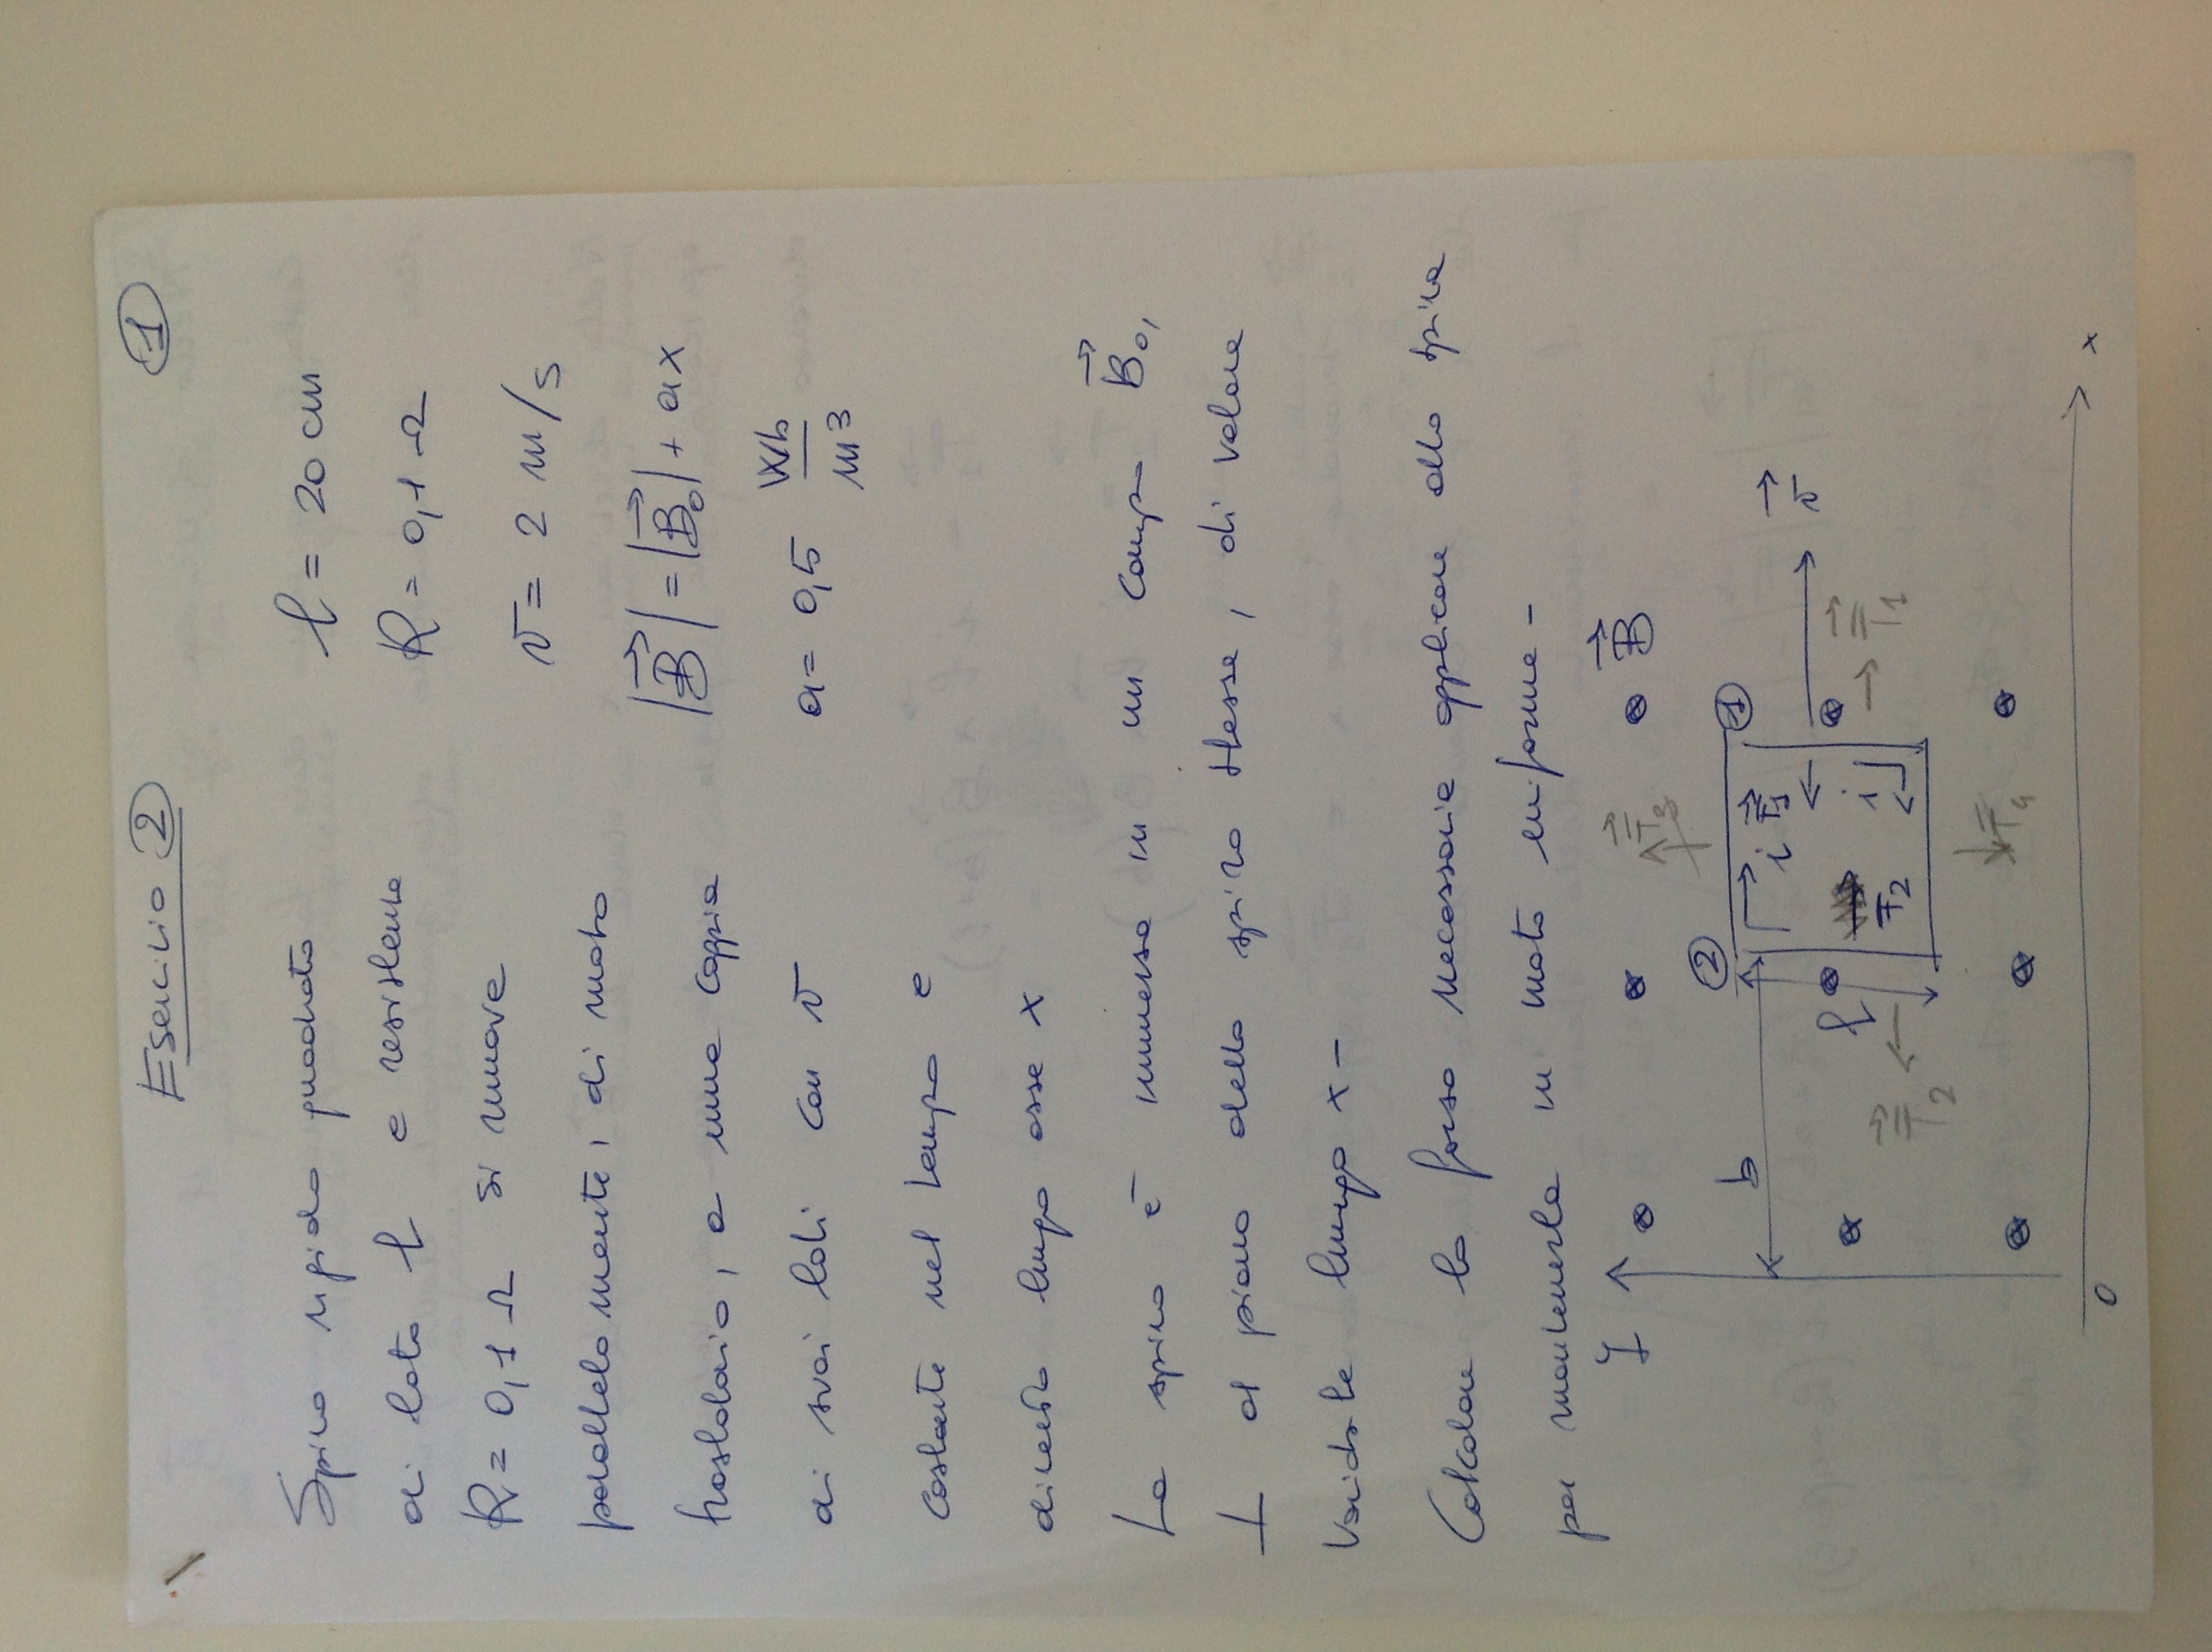 Esercizio 2
1
Spira rigida quadrata
di lato l e resistenza
R = 0,1 Ω si muove
parallelamente, di moto
traslatorio, a una coppia
di suoi lati con v
costante nel tempo e
diretta lungo asse x
l = 20 cm
R = 0,1 Ω
v = 2 m/s
|B| = |B₀| + ax
a = 0,5 Wb/m3
La spira è immersa in un campo B₀,
⊥ al piano della spira stessa, di valore
variabile lungo x -
Calcolare la forza necessaria applicare alla spira
per mantenerla in moto uniforme -
y
B
F3
2
1
b
i F1
v
l
F2
i
F1
F2
F4
0
x